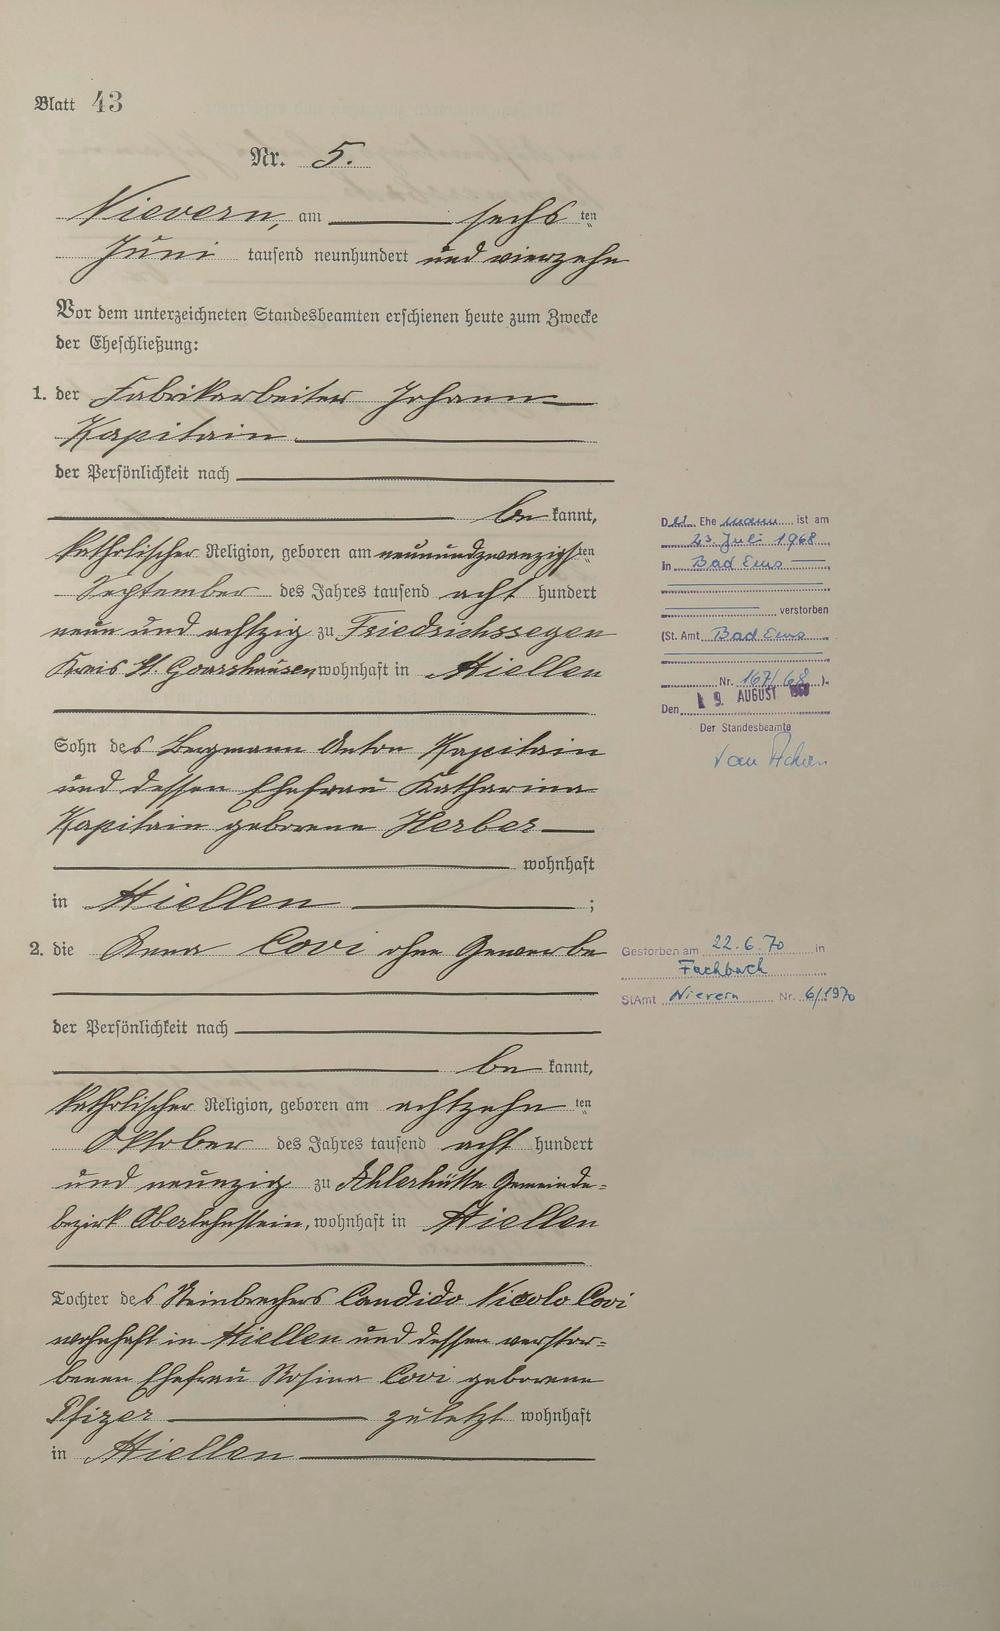 Blatt 43
Nr. 5.
Nievern, am sechs ten
Juni tausend neunhundert und vierzehn
Vor dem unterzeichneten Standesbeamten erschienen heute zum Zwecke
der Eheschließung:
1. der Fabrikarbeiter Johann
Kapitain
der Persönlichkeit nach
be kannt,
katholischer Religion, geboren am neunundzwanzigsten
September des Jahres tausend acht hundert
neun und achtzig zu Friedrichssegen
Kreis St. Goarshausen, wohnhaft in Miellen
Sohn des Bergmann Anton Kapitain
und dessen Ehefrau Katharina
Kapitain geborene Herber
wohnhaft
in Miellen ;
2. die Anna Covi ohne Gewerbe
der Persönlichkeit nach
be kannt,
katholischer Religion, geboren am achtzehn ten
Oktober des Jahres tausend acht hundert
und neunzig zu Ahlerhütte Gemeinde-
bezirk Oberlahnstein, wohnhaft in Miellen
Tochter des Steinbrechers Candido Nicolo Covi
wohnhaft in Miellen und dessen verstor-
benen Ehefrau Rosina Covi geborene
Pfizer zuletzt wohnhaft
in Miellen
Der Ehe mann ist am
23. Juli 1968
in Bad Ems
verstorben
(St. Amt Bad Ems
Nr. 167/68 ).
Den 19. AUGUST 1968
Der Standesbeamte
Gestorben am 22.6.70 in
Fachbach
StAmt Nievern Nr. 6/1970